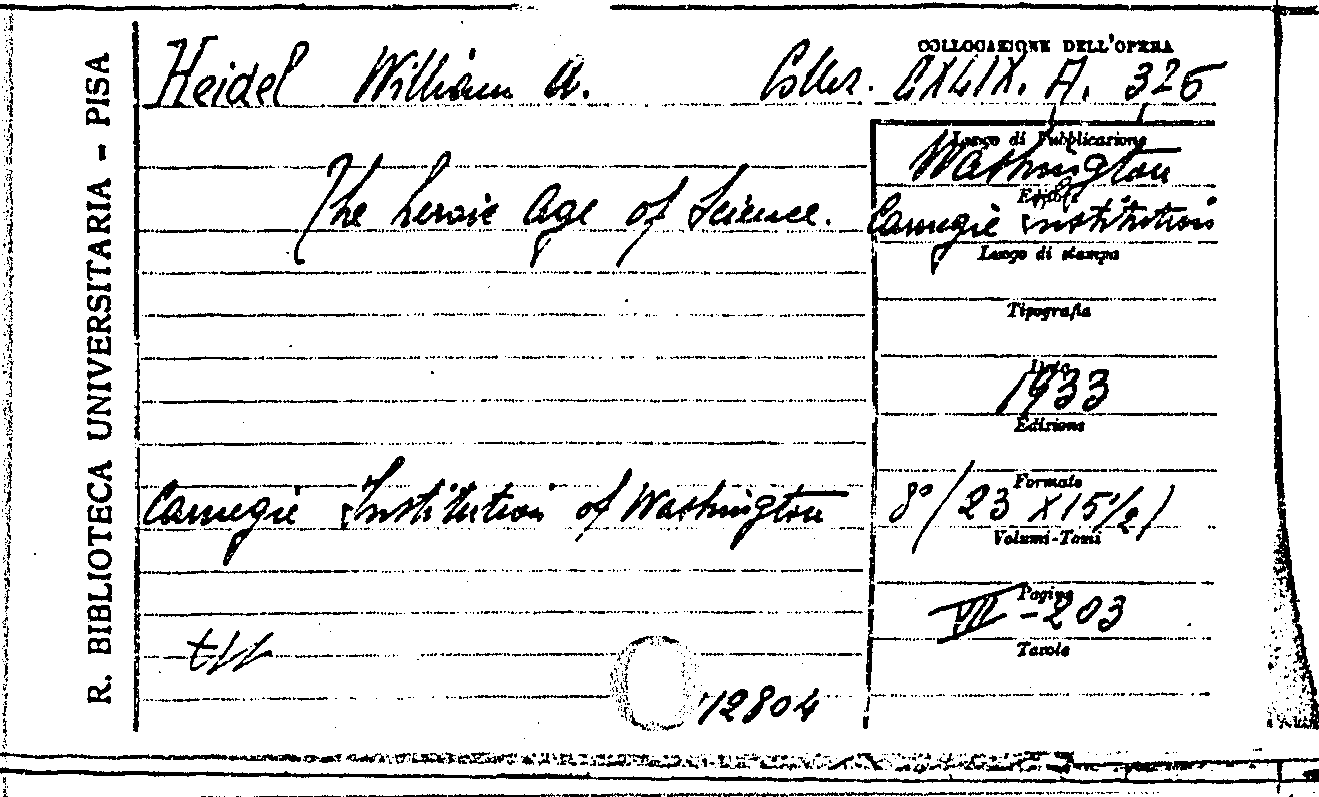 R. BIBLIOTECA UNIVERSITARIA - PISA
COLLOCAZIONE DELL'OPERA
Heidel William A. Colloc. CXLIX. A. 325
The heroic Age of Science.
Carnegie Institution of Washington
12804
Luogo di Pubblicazione
Washington
Carnegie Institution
Luogo di stampa
Tipografia
Data
1933
Edizione
Formato
8° (23 X 15 1/2)
Volumi-Tomi
Pagine
VII - 203
Tavole